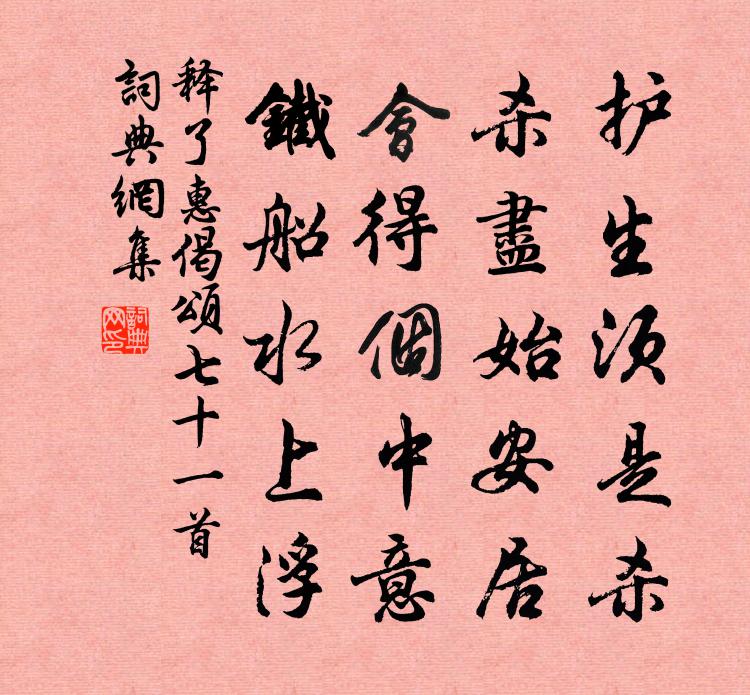 护生须是杀
杀盡始安居
會得個中意
鐵船水上浮
释了惠偈頌七十一首
詞典網集
詞典網印